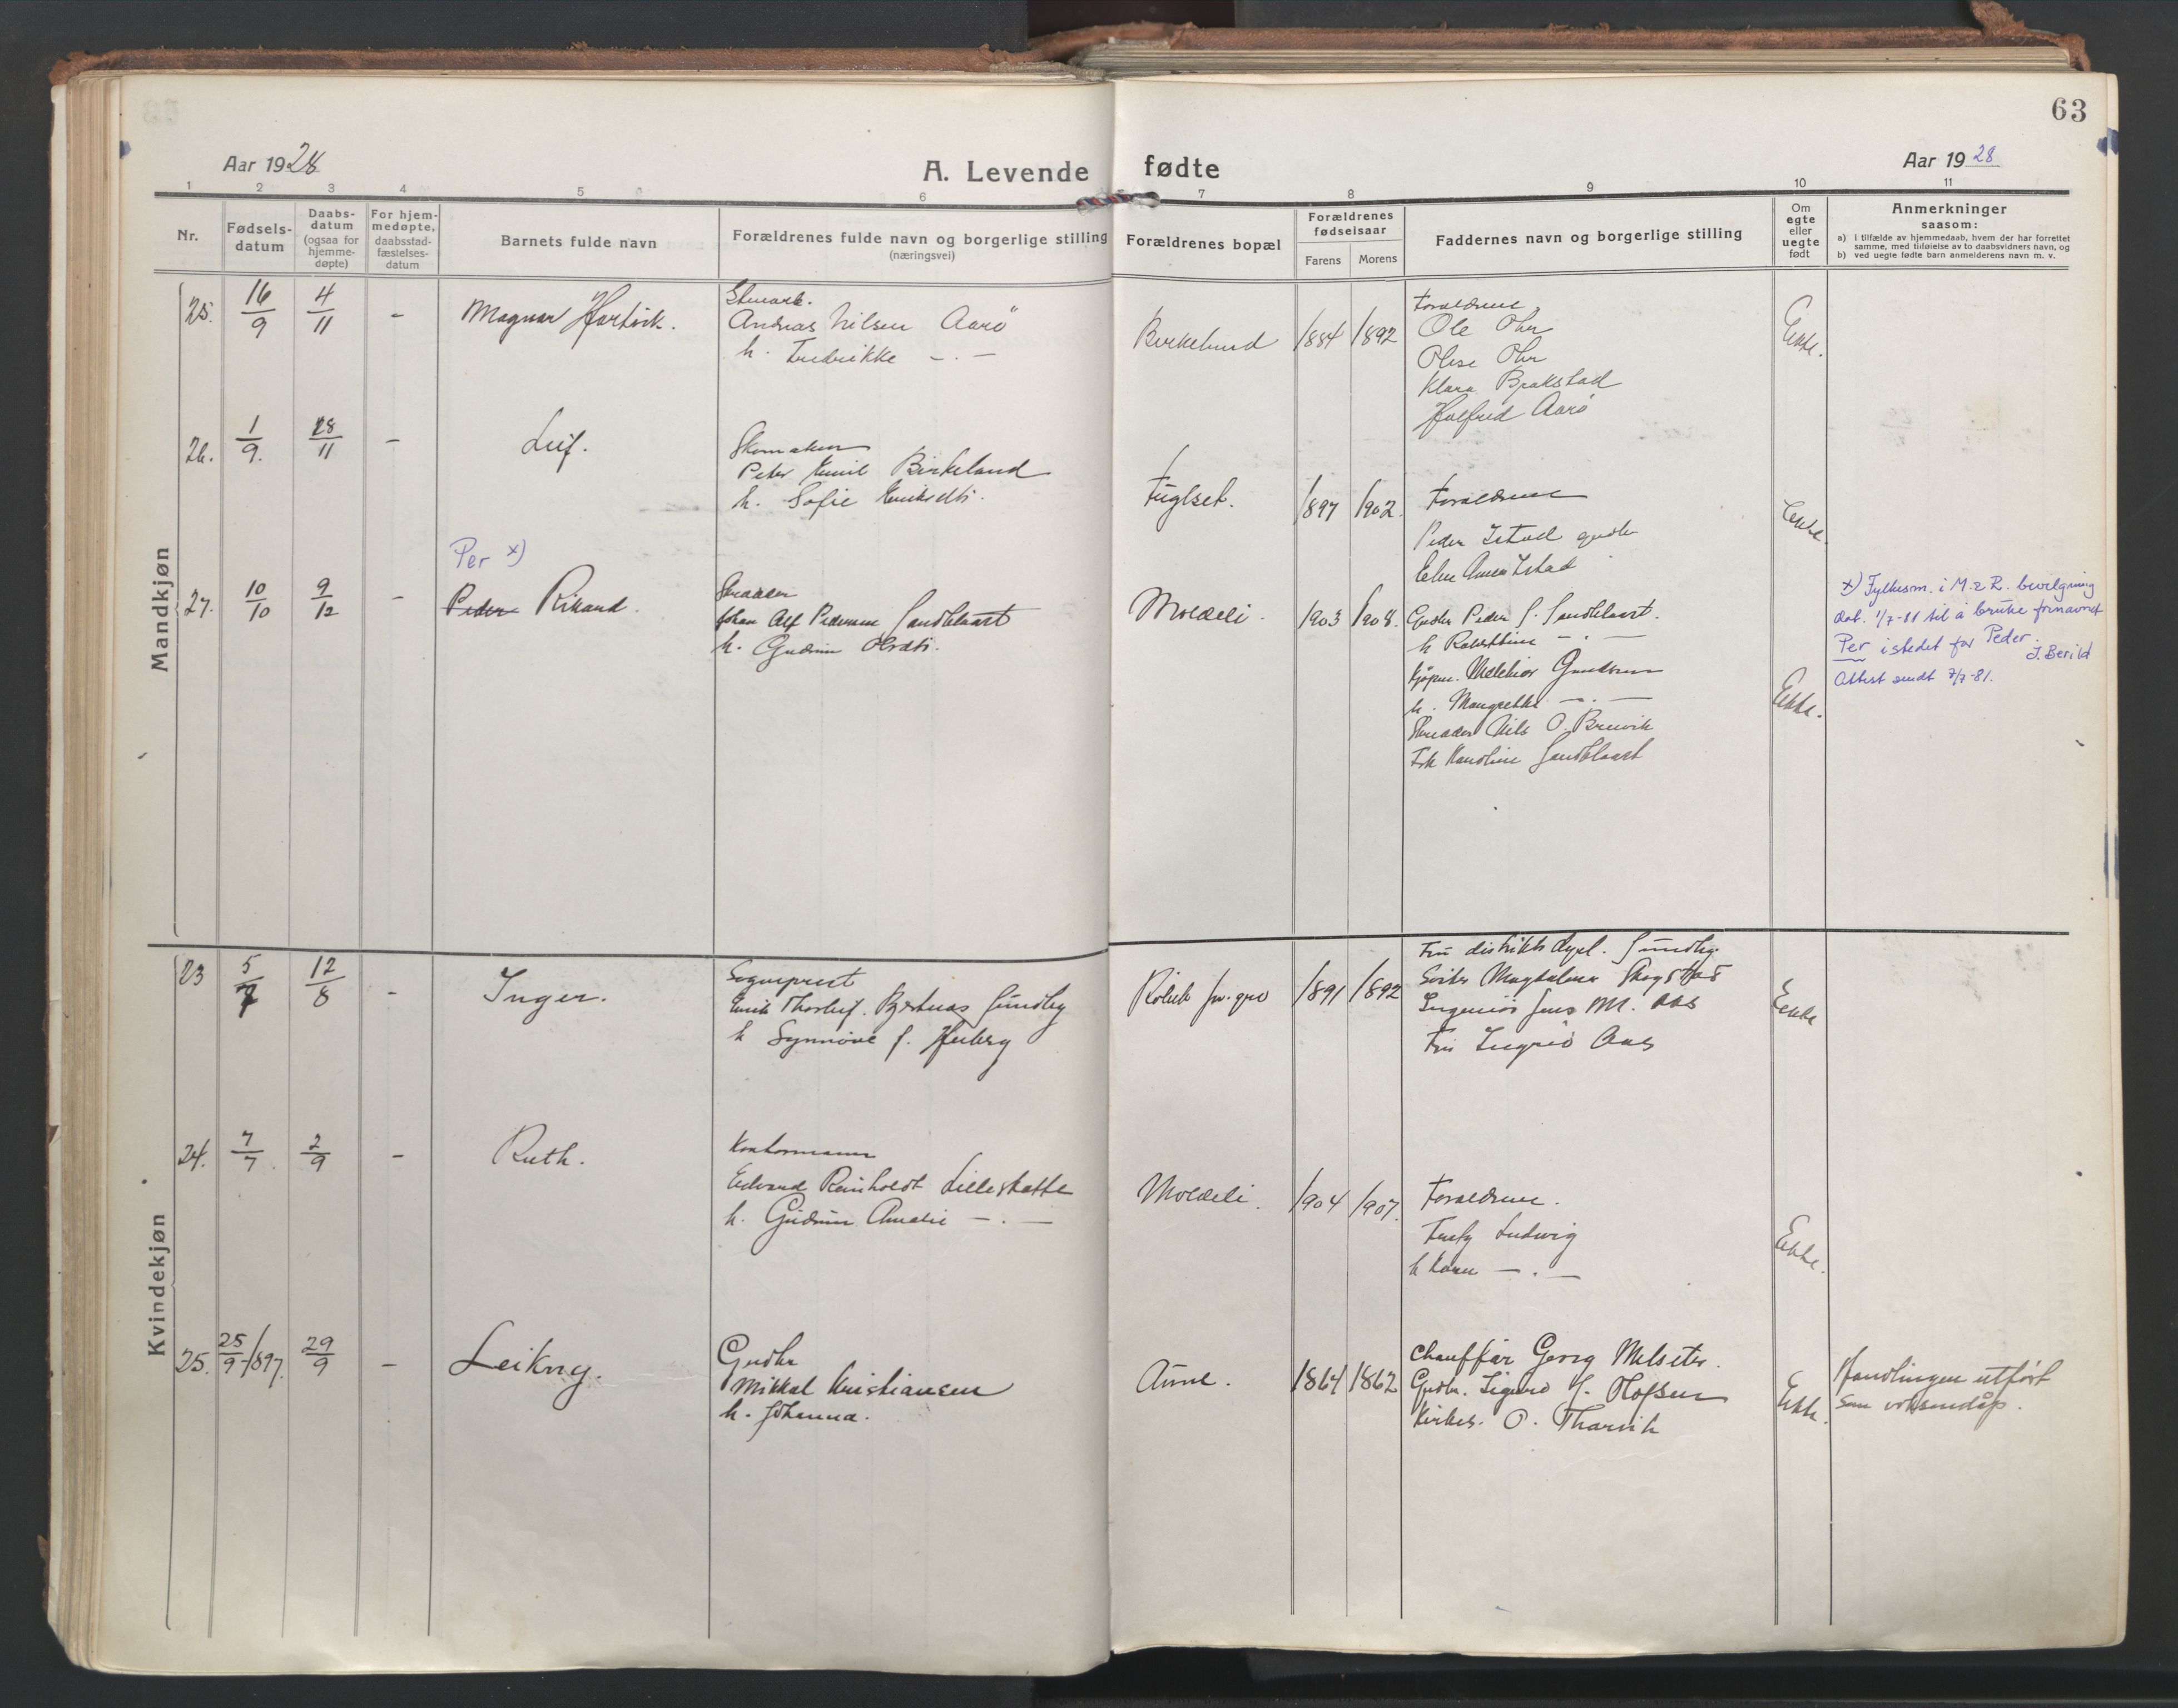 63
Aar 1928
A. Levende fødte
Aar 1928
1 2 3 4 5 6 7 8 9 10 11
Nr.
Fødsels-
datum
Daabs-
datum
(ogsaa for
hjemme-
døpte)
For hjem-
medøpte,
daabsstad-
fæstelses-
datum
Barnets fulde navn
Forældrenes fulde navn og borgerlige stilling
(næringsvei)
Forældrenes bopæl
Forældrenes
fødselsaar
Farens Morens
Faddernes navn og borgerlige stilling
Om
egte
eller
uegte
født
Anmerkninger
saasom:
a) i tilfælde av hjemmedaab, hvem der har forrettet
samme, med tilføielse av to daabsvidners navn, og
b) ved uegte fødte barn anmelderens navn m. v.
Mandkjøn
25. 16/9 4/11 - Magnar Hartvik.
Andreas Nilsen Aarö
h. Fredrikke -.-
Birkelund 1884 1892
Forældrene
Ole Ohr
Olise Ohr
Klara Brakstad
Halfrid Aarö
Ekte.
26. 1/9. 28/11 - Leif.
Skomaker
Peter Emil Birkeland
h. Sofie Eriksdtr.
Fuglset. 1897 1902.
Forældrene
Peder Istad gmbr
Ekte.
Per x)
27. 10/10 9/12 - Peder Rikard.
Skrædder
Johan Alf Pedersen Sandblaast
h. Gudrun Olsdtr.
Moldeli. 1903 1908.
Gmbr Peder J. Sandblaast.
h -.-
Kjøpm. Melchior Gundersen
h. Margrethe -.-
Skrædder Nils O. Brevik
Frk Karoline Sandblaast
Ekte.
x) Fylkesm. i M. & R. bevilgning
dat. 1/7-81 til å bruke fornavnet
Per istedet for Peder.
J. Berild
Attest sendt 7/7-81.
Kvindekjøn
23 5/7 12/8 - Inger.
Sogneprest
Erik Thorleif Bertnas Sundby
h Synnöve f. Heiberg
1891 1892
Fru distriktslægel. Sundby
Söster Magdalena Skogstad
Ingeniör Jens M. Aas
Fru Ingrid Aas
Ekte
24. 7/7. 2/9 - Ruth.
Kontormann
Edvard Reinholdt Lilleskatte
h. Gudrun Amalie -.-
Moldeli. 1904 1907.
Forældrene.
Ludvig
h Karen -.-
Ekte.
25. 25/9-1897. 29/9 - Leikny.
Gmbr
Mikkal Kristiansen
h. Johanna.
Aune. 1864 1862
Chauffør Georg Melseter.
Gmbr. Sigurd H. Olafsen
Kirkes. O. Tharvik
Ekte.
Handlingen utfört
som voksendåp.